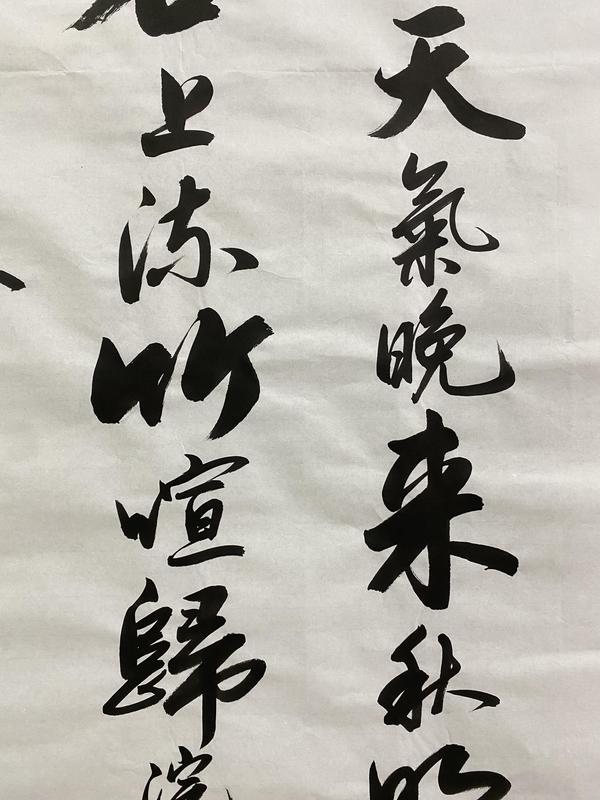 天氣晚来秋明
上流竹喧歸浣